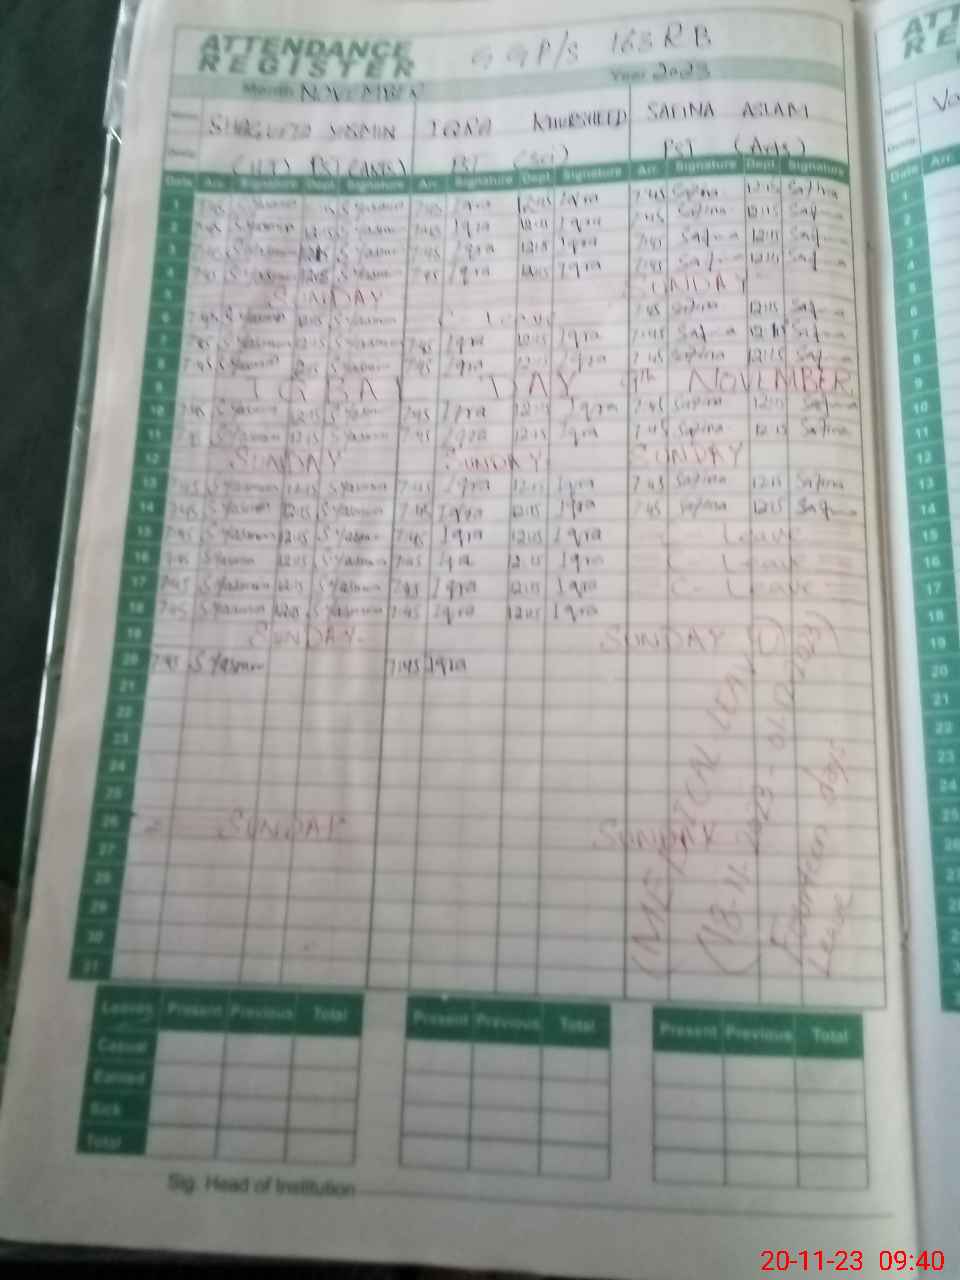 ATTENDANCE
REGISTER
GGP/S 163 RB
Month NOVEMBER Year 2023
SHAGUFTA YASMIN IQRA KHURSHEED SAFINA ASLAM
PST (Arts) PST (Sci) PST (Arts)
Date Arr. Signature Dept. Signature Arr. Signature Dept. Signature Arr. Signature Dept. Signature
1 7:45 S Yasmin S Yasmin 7:45 Iqra 12:15 Iqra 7:45 Safina 12:15 Safina
2 7:45 S Yasmin 12:15 S Yasmin 7:45 Iqra 12:15 Iqra 7:45 Safina 12:15 Safina
3 7:45 S Yasmin 12:15 S Yasmin 7:45 Iqra 12:15 Iqra 7:45 Safina 12:15 Safina
4 7:45 S Yasmin 12:15 S Yasmin 7:45 Iqra 12:15 Iqra 7:45 Safina 12:15 Safina
5 SUNDAY SUNDAY
6 7:45 S Yasmin 12:15 S Yasmin C- Leave 7:45 Safina 12:15 Safina
7 7:45 S Yasmin 12:15 S Yasmin 7:45 Iqra 12:15 Iqra 7:45 Safina 12:15 Safina
8 7:45 S Yasmin 12:15 S Yasmin 7:45 Iqra 12:15 Iqra 7:45 Safina 12:15 Safina
9 IQBAL DAY 9th NOVEMBER
10 7:45 S Yasmin 12:15 S Yasmin 7:45 Iqra 12:15 Iqra 7:45 Safina 12:15 Safina
11 7:45 S Yasmin 12:15 S Yasmin 7:45 Iqra 12:15 Iqra 7:45 Safina 12:15 Safina
12 SUNDAY SUNDAY SUNDAY
13 7:45 S Yasmin 12:15 S Yasmin 7:45 Iqra 12:15 Iqra 7:45 Safina 12:15 Safina
14 7:45 S Yasmin 12:15 S Yasmin 7:45 Iqra 12:15 Iqra 7:45 Safina 12:15 Safina
15 7:45 S Yasmin 12:15 S Yasmin 7:45 Iqra 12:15 Iqra C- Leave
16 7:45 S Yasmin 12:15 S Yasmin 7:45 Iqra 12:15 Iqra C- Leave
17 7:45 S Yasmin 12:15 S Yasmin 7:45 Iqra 12:15 Iqra C- Leave
18 7:45 S Yasmin 12:15 S Yasmin 7:45 Iqra 12:15 Iqra
19 SUNDAY SUNDAY
20 7:45 S Yasmin 7:45 Iqra
21
22
23
24
25
26 SUNDAY SUNDAY
27
28
29
30
31
Fourteen days
Leave
Leaves Present Previous Total Present Previous Total Present Previous Total
Casual
Earned
Sick
Total
Sig. Head of Institution
20-11-23 09:40